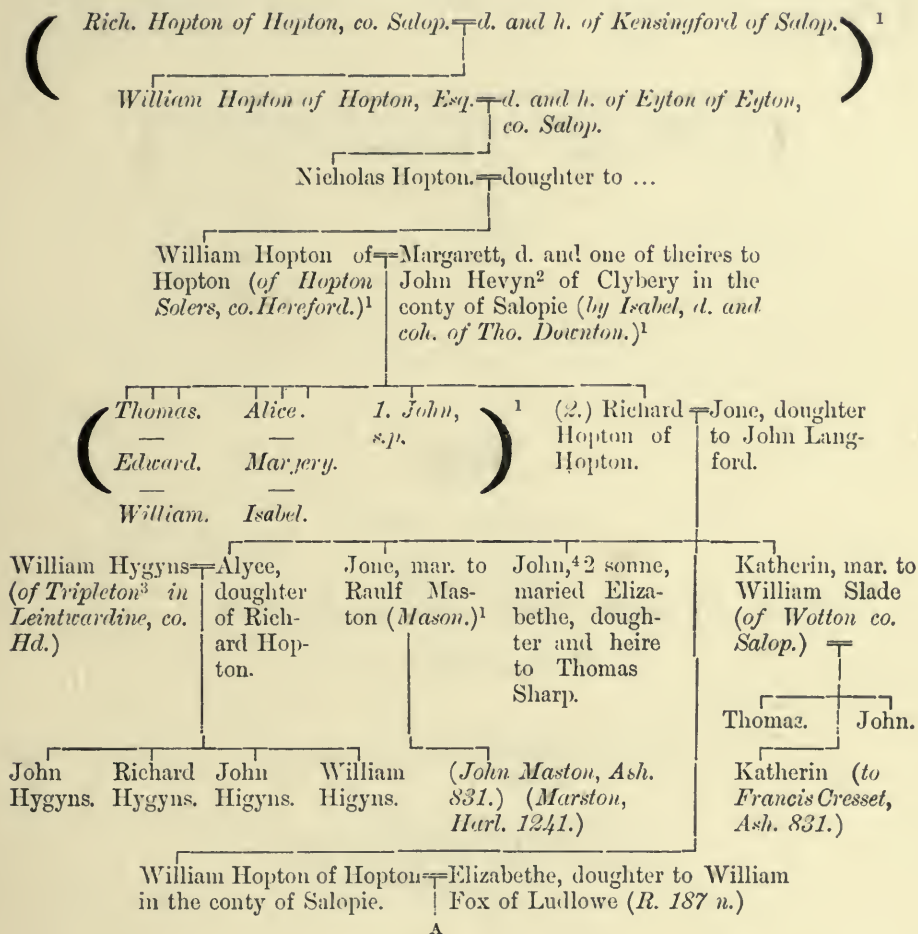 Rich. Hopton of Hopton, co. Salop. d. and h. of Kensingford of Salop. 1
William Hopton of Hopton, Esq. d. and h. of Eyton of Eyton,
co. Salop.
Nicholas Hopton. doughter to ...
William Hopton of
Hopton (of Hopton
Solers, co. Hereford.)1
Margarett, d. and one of theires to
John Hevyn2 of Clybery in the
conty of Salopie (by Isabel, d. and
coh. of Tho. Downton.)1
(Thomas.
—
Edward.
—
William.
Alice.
—
Margery.
—
Isabel.
1. John,
s.p.) 1
(2.) Richard
Hopton of
Hopton.
Jone, doughter
to John Lang-
ford.
William Hygyns
(of Tripleton3 in
Leintwardine, co.
Hd.)
Alyce,
doughter
of Rich-
ard Hop-
ton.
Jone, mar. to
Raulf Mas-
ton (Mason.)1
John,4 2 sonne,
maried Eliza-
bethe, dough-
ter and heire
to Thomas
Sharp.
Katherin, mar. to
William Slade
(of Wotton co.
Salop.)
Thomas. John.
John
Hygyns.
Richard
Hygyns.
John
Higyns.
William
Higyns.
(John Maston, Ash.
831.) (Marston,
Harl. 1241.)
Katherin (to
Francis Cresset,
Ash. 831.)
William Hopton of Hopton
in the conty of Salopie.
Elizabethe, doughter to William
Fox of Ludlowe (R. 187 n.)
A